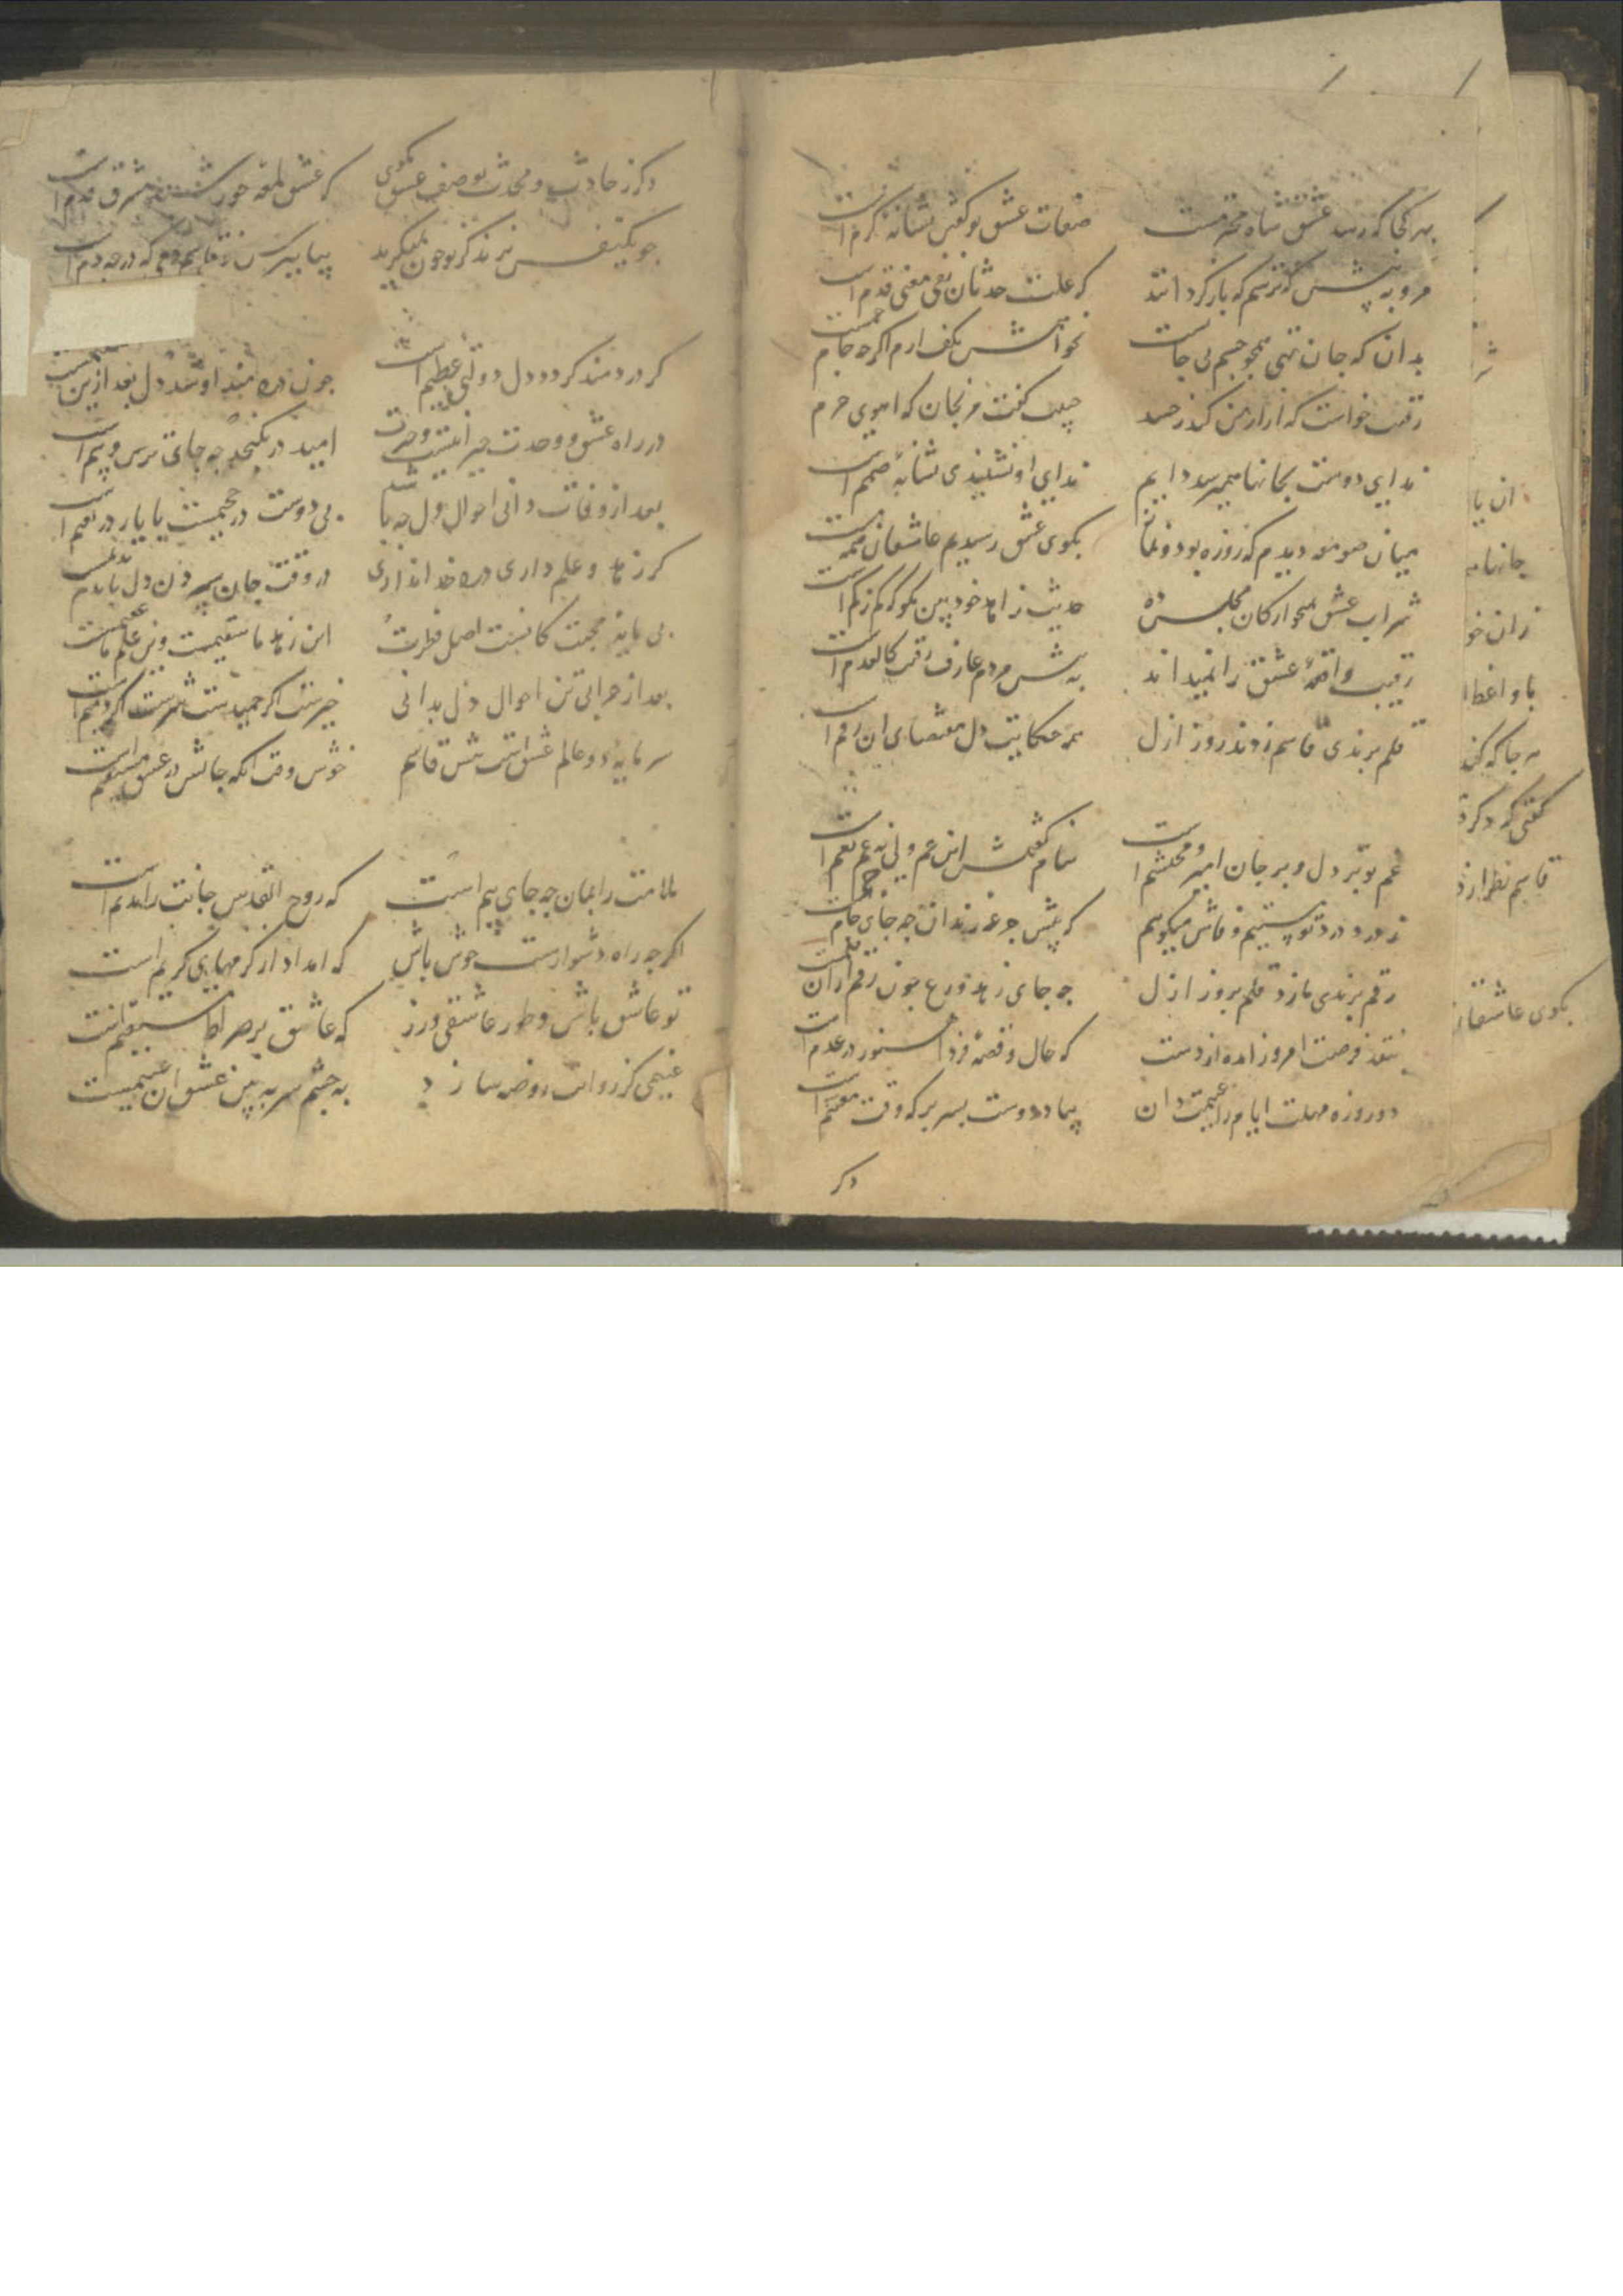 بهر کجا که رسد عشق شاه محترمست صفات عشق تو کفتن نشانهٔ کرم است
مرو به پیش که ترسم که باز کردانند که علت حدثان نفی معنی قدم است
بدان که جان تهی همچو جسم بی جانست نخوانمش بکف ارم اکرچه جام جمست
رقیب خواست که ازار من کند حبیب کفت مرنجان که اهوی حرم
ندای دوست بجانها همیرسد دایم ندای او نشنیدی نشانهٔ صمم است
میان صومعه دیدم که روزه بود و نماز بکوی عشق رسیدیم عاشقان همه
شراب عشق بمیخوارکان مجلس ده حدیث زاهد خودبین مکو که کم ز کم است
رقیب واقعهٔ عشق را نمیداند به پیش مردم عارف رقیب کالعدم است
قلم برندی قاسم زدند روز ازل همه حکایت دل مقتضای ان رقم است
غم تو بر دل و بر جان امیر و محتشم است بنام کفتمش این غم ولی نه غم نعم است
ز درد درد تو مستیم و فاش میکوییم که پیش جرعهٔ رندان چه جای جام جم است
رقم برندی ما زد قلم بروز ازل چه جای زهد و ورع چون رقم از ان قلمست
بنقد فرصت امروز مده از دست که حال و قصهٔ فردا هنوز در عدم است
دو روزه مهلت ایام را غنیمت دان بیاد دوست بسر بر که وقت مغتنم است
دکر
دکر ز حادث و محدث بوصف عشق مکوی که عشق لمعهٔ خورشید مشرق قدم است
چو یکنفس نزند کز تو خون نمیکرید بیا بپرس ز قاسم دمی که در چه دم است
کر دردمند کردد دل دولتی عظیم است چون دردمند او شد دل بعد ازین
در راه عشق و وحدت حیرانیست و حیرت امید در نکنجد چه جای ترس و بیم است
بعد از وفات دانی احوال دل چه باشد بی دوست در جحیمست با یار در نعیم است
کر زهد و علم داری درد خدا نداری در وقت جان سپردن دل با ندم
بی مایهٔ محبت کانست اصل فطرت این زهد ما سقیمست وین علم ما عقیمست
بعد از خرابی تن احوال دل بدانی خیرست اکر حمیدست شرست اکر ذمیم است
سرمایهٔ دو عالم عشق است پیش قاسم خوش وقت انکه جانش در عشق مستقیم است
ملامت را بمان چه جای بیم است که روح القدس جانت را ندیم است
اکرچه راه دشوارست خوش باش که امداد از کرمهای کریم است
تو عاشق باش و طور عاشقی ورز که عاشق بر صراط مستقیم است
نعیمی کز روانت روضه سازد به چشم سر به بین عشق ان نعیمست
ان یا
جانها
زان خو
با واعظا
هر جا که
کفتی که دکر
قاسم نظر از
بکوی عاشقا